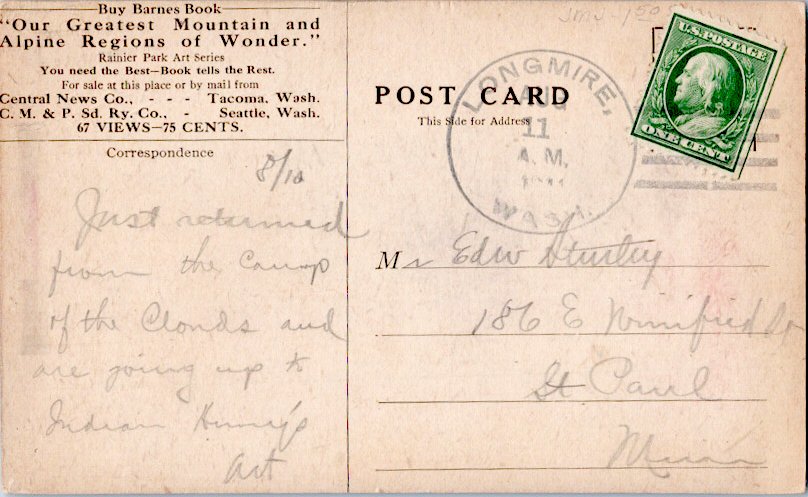 Buy Barnes Book
"Our Greatest Mountain and
Alpine Regions of Wonder."
Rainier Park Art Series
You need the Best—Book tells the Rest.
For sale at this place or by mail from
Central News Co., - - - Tacoma, Wash.
C. M. & P. Sd. Ry. Co., - Seattle, Wash.
67 VIEWS—75 CENTS.
Correspondence
8/10
Just returned
from the Camp
of the Clouds and
are going up to
Indian Henry's
Art
POST CARD
This Side for Address
LONGMIRE,
AUG
11
A.M.
WASH.
U.S. POSTAGE
ONE CENT
Mr Edw
186 E Winifred
St Paul
Minn